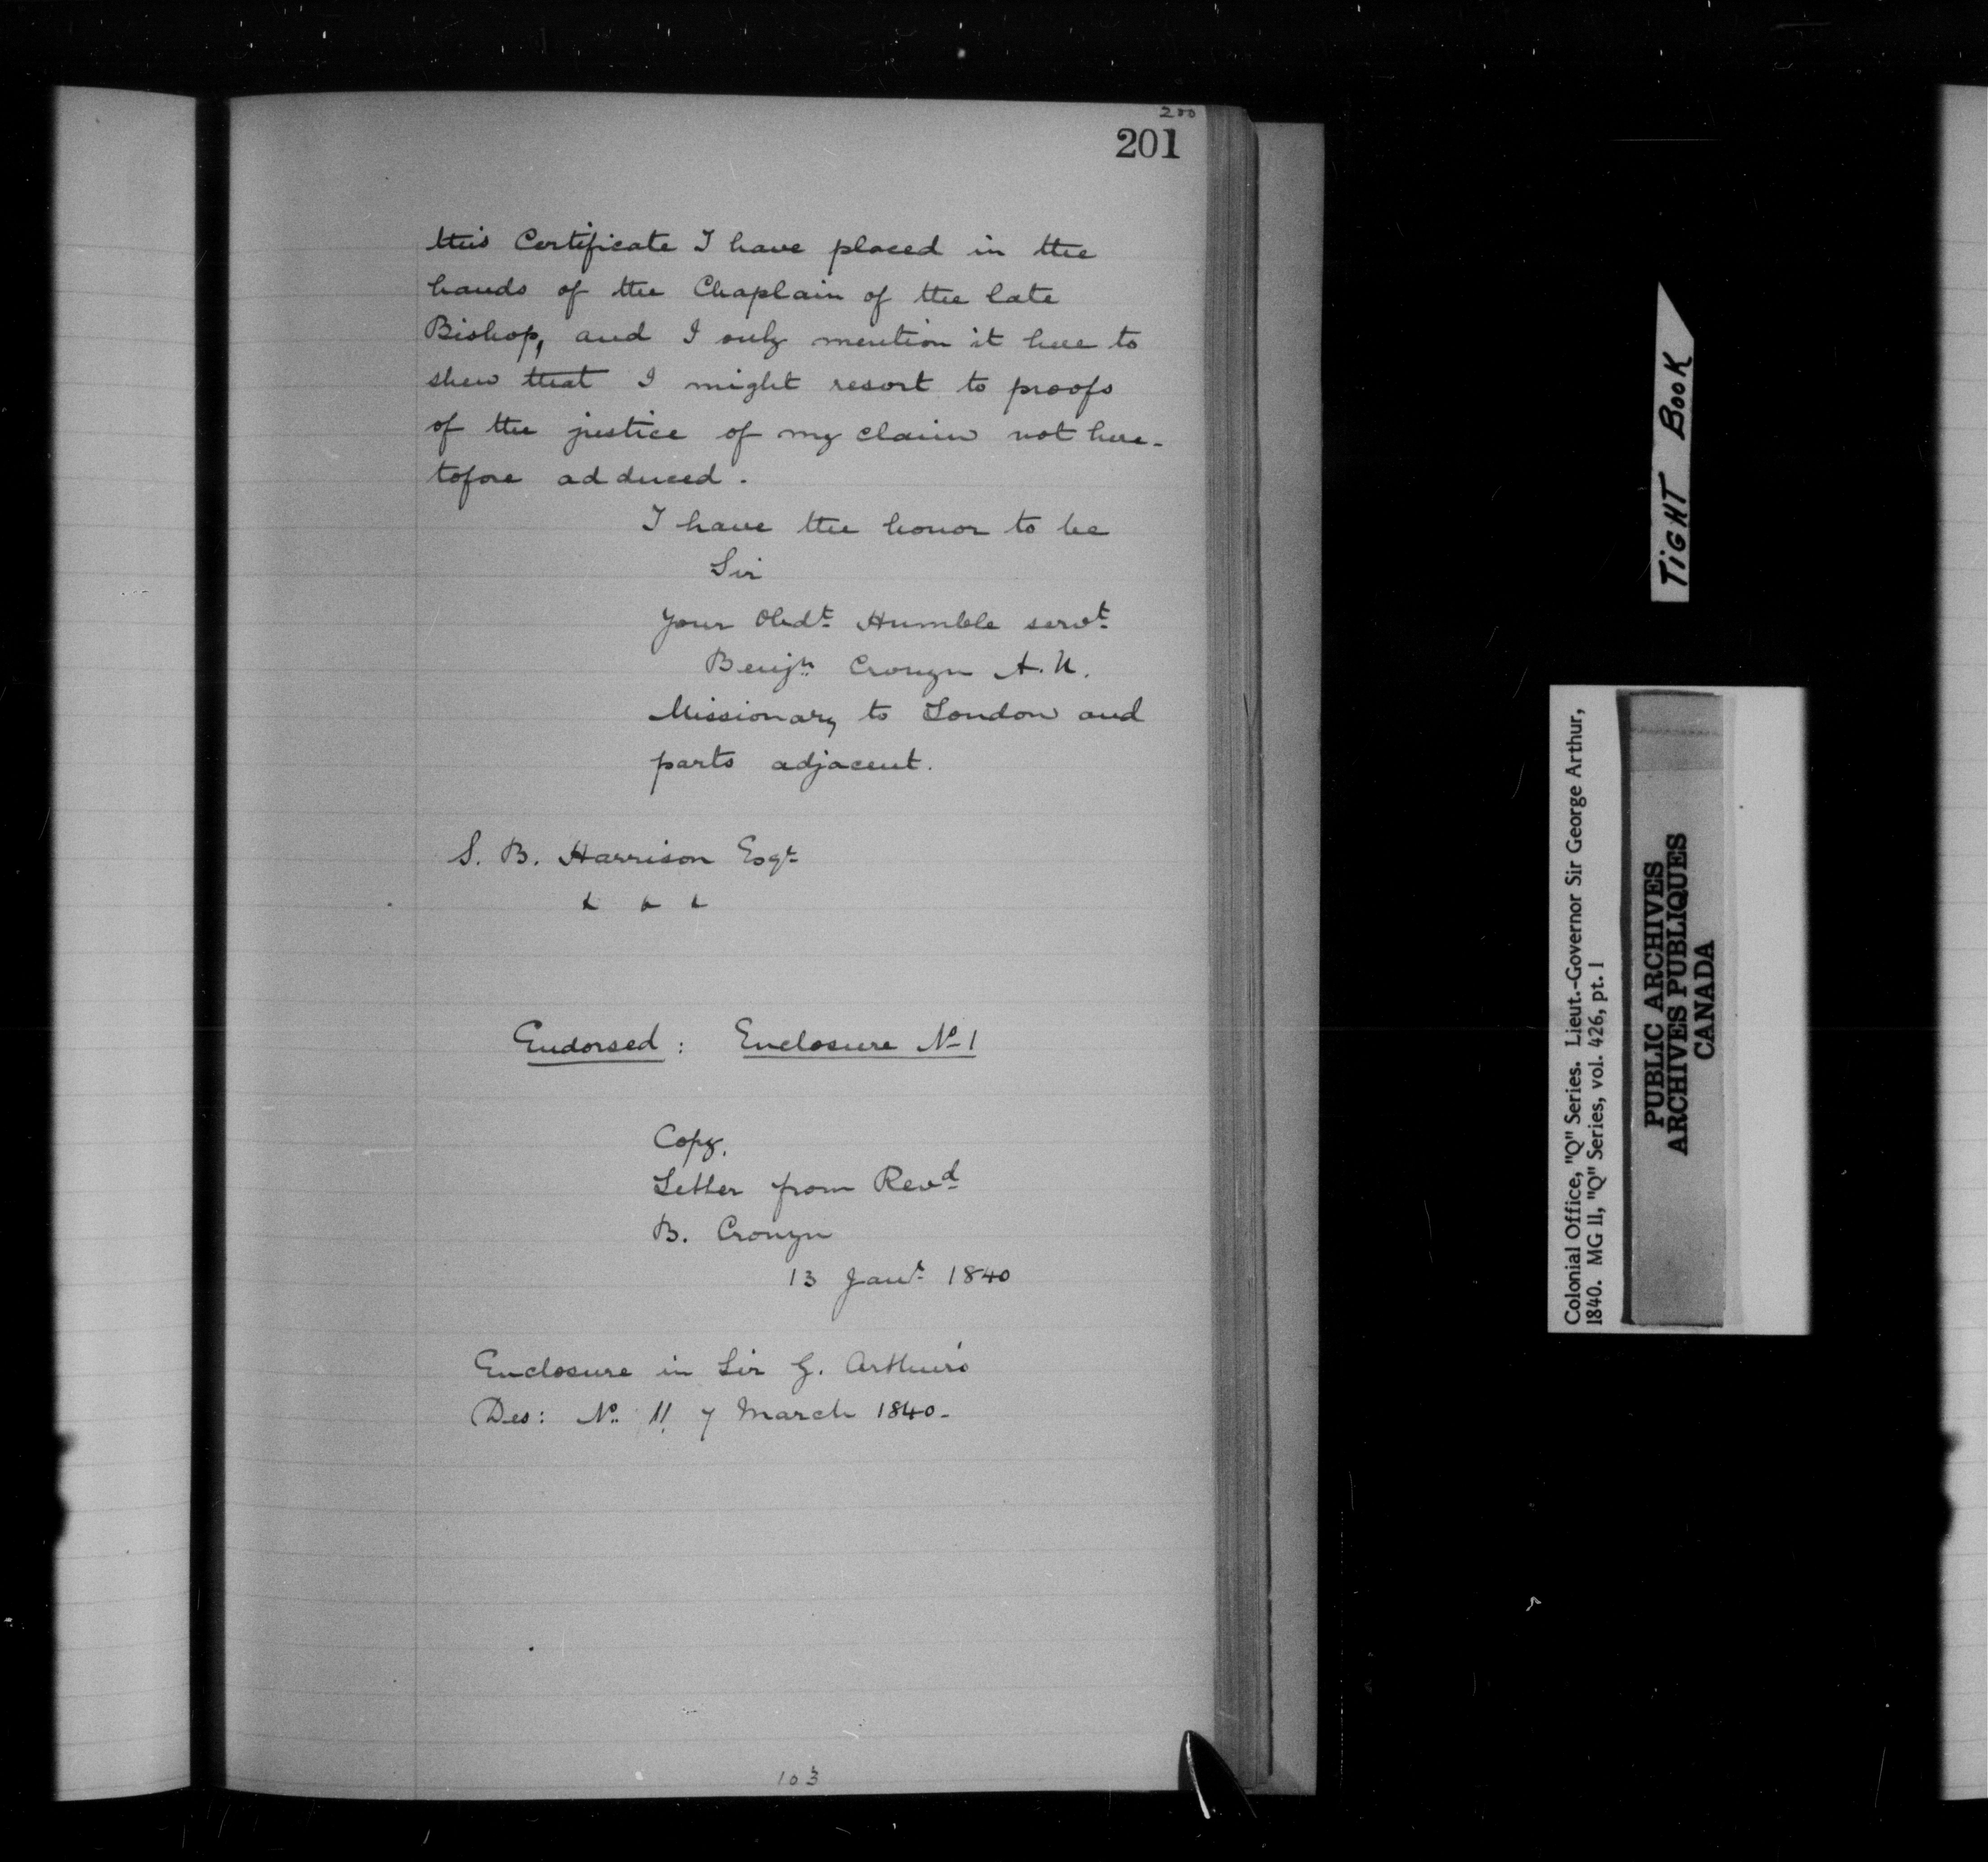 200
201
this Certificate I have placed in the
hands of the Chaplain of the late
Bishop, and I only mention it here to
shew that I might resort to proofs
of the justice of my claim not here-
tofore adduced.
I have the honor to be
Sir
Your Obdt Humble servt
Benjn Cronyn A.M.
Missionary to London and
parts adjacent.
S. B. Harrison Esqr
& & &
Endorsed: Enclosure No 1
Copy.
Letter from Revd
B. Cronyn
13 Jany 1840
Enclosure in Sir G. Arthur's
Des: No. 11, 7 March 1840.
103
TIGHT BOOK
Colonial Office, "Q" Series. Lieut.-Governor Sir George Arthur,
1840. MG 11, "Q" Series, vol. 426, pt. 1
PUBLIC ARCHIVES
ARCHIVES PUBLIQUES
CANADA